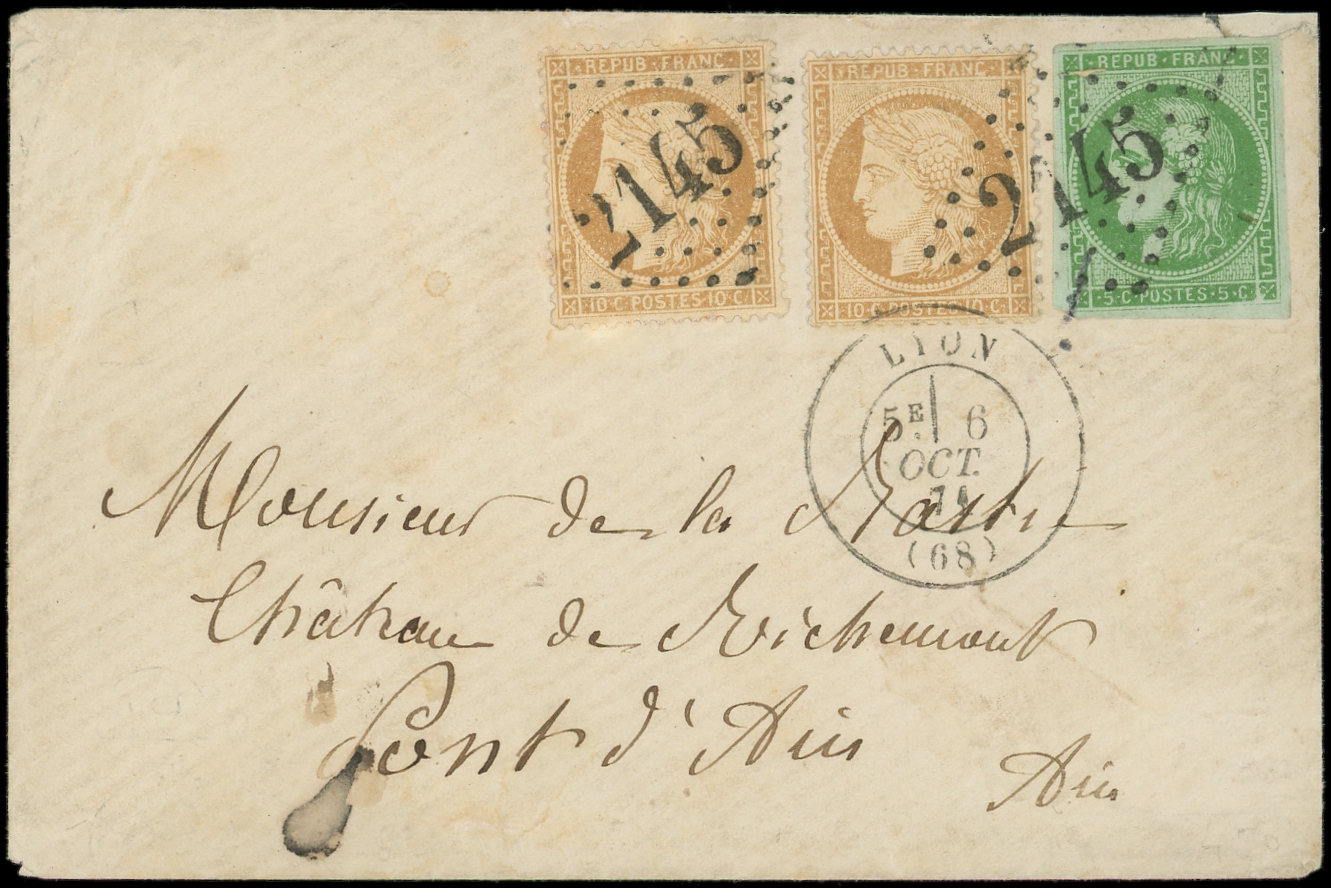 REPUB·FRANC
10·C·POSTES·10·C
2145
REPUB·FRANC
10·C·POSTES·10·C
2145
REPUB·FRANC
5·C·POSTES·5·C
LYON
5E 6
OCT.
71
(68)
Monsieur de la
Château de Richemont
Pont d'Ain
Ain